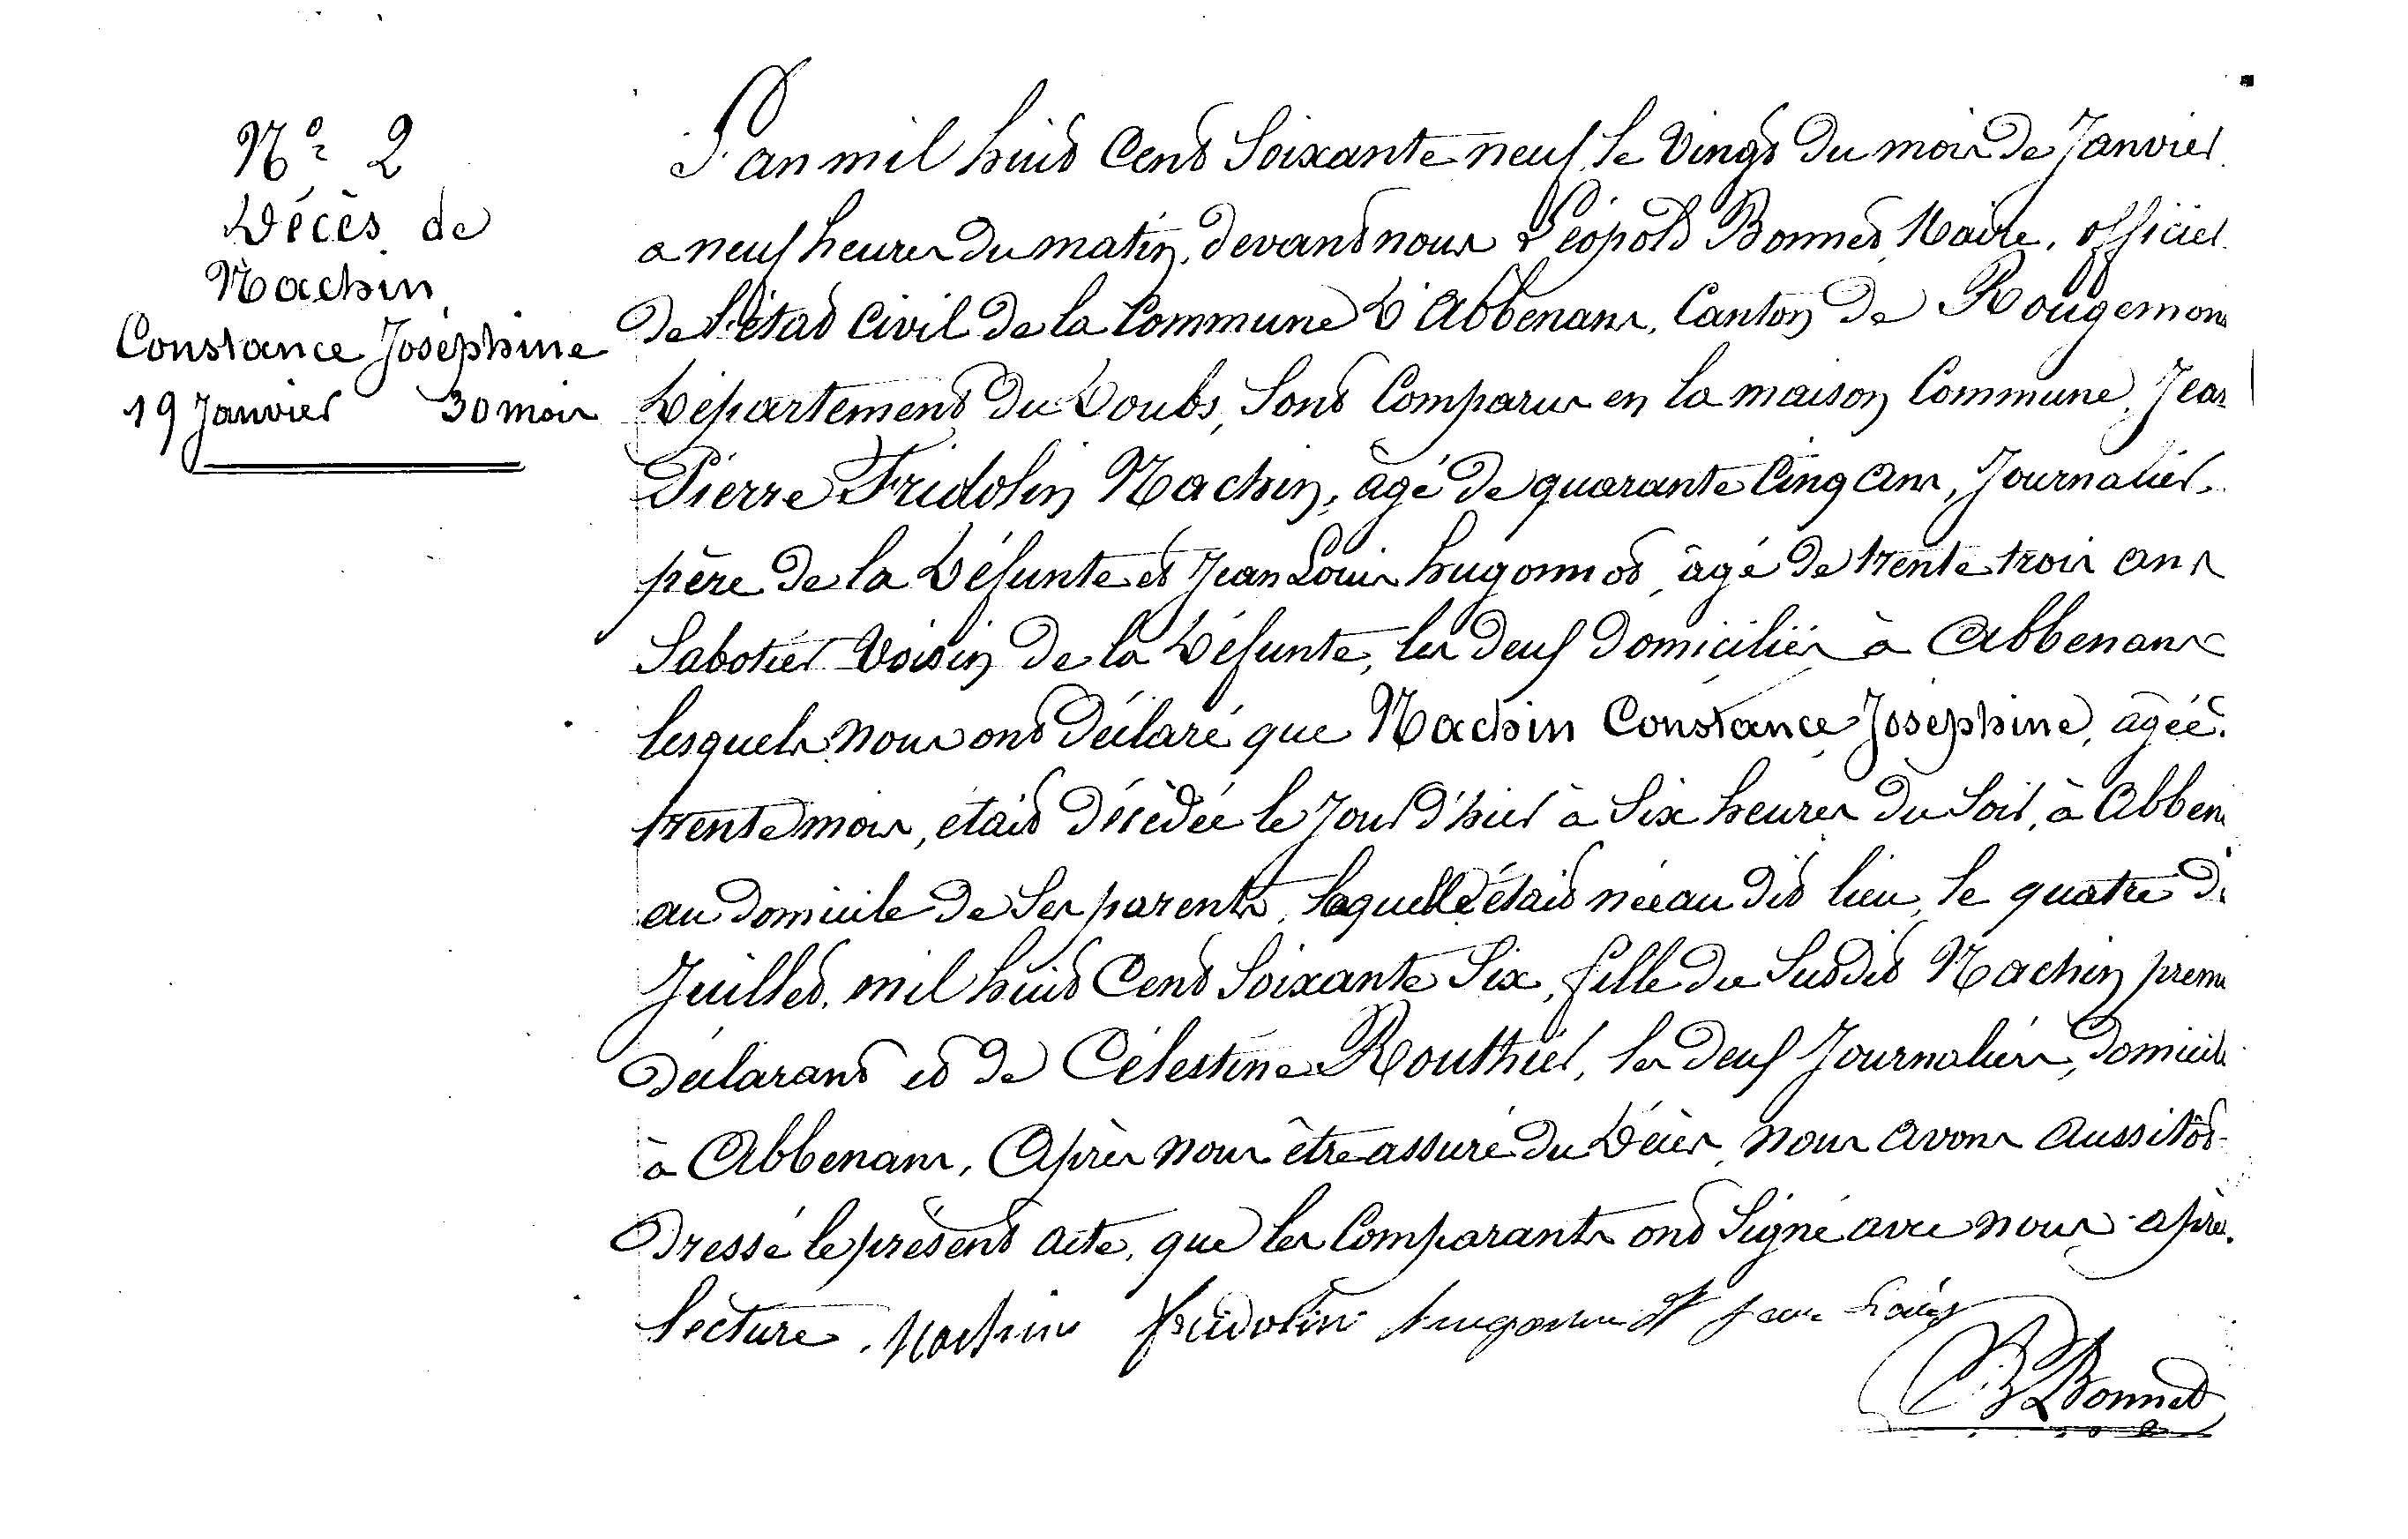 N° 2
Décès de
Machin
Constance Joséphine
19 Janvier 30 mois
L'an mil huit Cent Soixante neuf, le Vingt du mois de Janvier
a neuf heures du matin, devant nous Léopold Bonnet, Maire, officier
de l'état Civil de la Commune d'Abbenans, Canton de Rougemon
Département du Doubs, Sont Comparus en la maison Commune, Jean
Pierre Fridolin Machin, âgé de quarante Cinq ans, Journalier
père de la Défunte et Jean Louis hugonnot, âgé de trente trois ans
Sabotier Voisin de la Défunte, les deux domiciliés à Abbenans
lesquels nous ont déclaré que Machin Constance Joséphine, agée
trente mois, était décédée le Jour d'hier à Six heures du Soir, à Abben
au domicile de Ses parents, laquelle était née au dit lieu, le quatre d
Juillet, mil huit Cent Soixante Six, fille du Susdit Machin prem
déclarant et de Célestine Routhier, les deux Journaliers, domicil
à Abbenans, Après nous être assuré du Décès, nous avons aussitôt
Dressé le présent acte, que les Comparants ont Signé avec nous après
lecture. Machin fridolin hugonnot jean louis
Bonnet